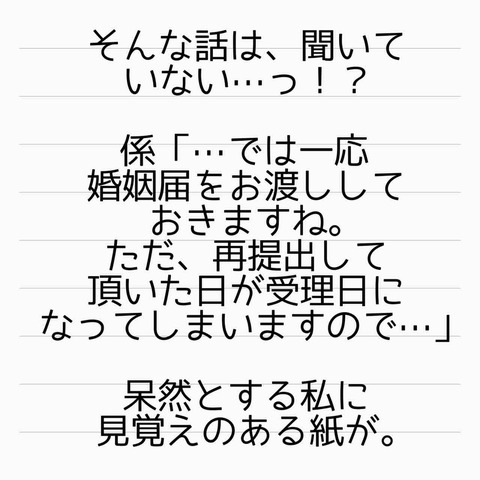 そんな話は、聞いて
いない…っ！？
係「…では一応
婚姻届をお渡しして
おきますね。
ただ、再提出して
頂いた日が受理日に
なってしまいますので…」
呆然とする私に
見覚えのある紙が。